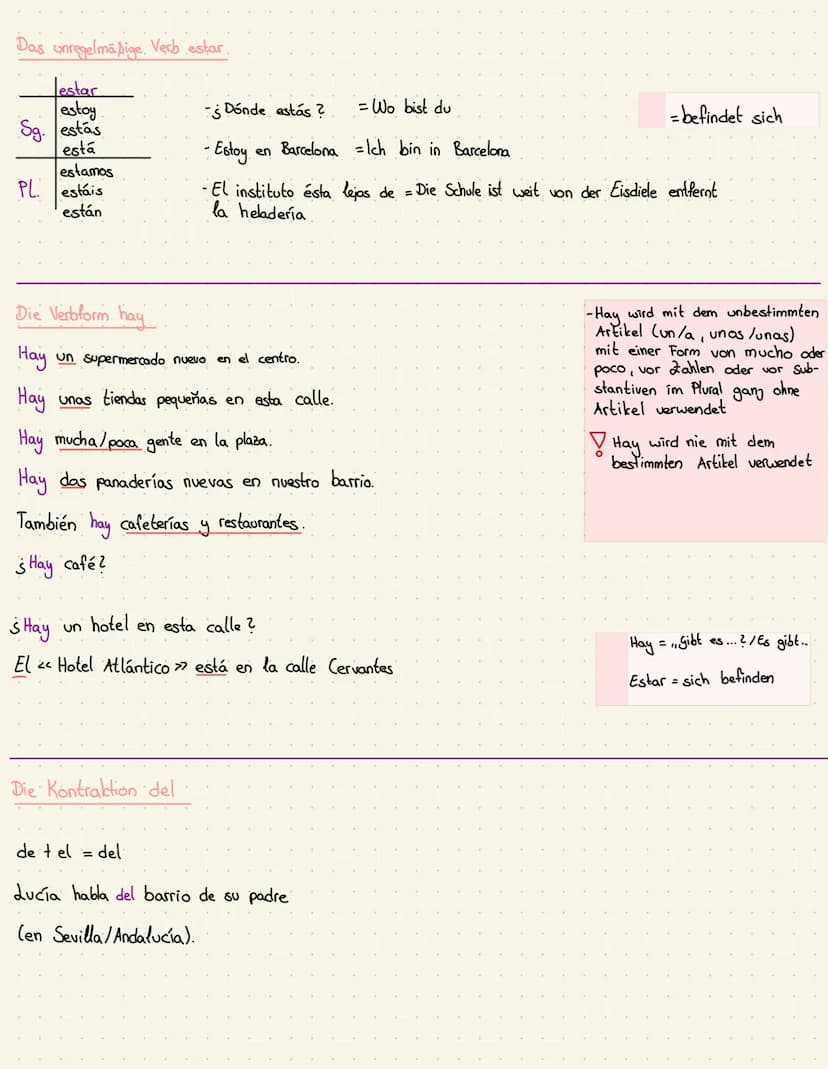 Das unregelmäßige Verb estar
estar
Sg.
estoy
estás
está
PL.
estamos
estáis
están
-¿Dónde estás? = Wo bist du
- Estoy en Barcelona = Ich bin in Barcelona
- El instituto ésta lejos de = Die Schule ist weit von der Eisdiele entfernt
la heladería
= befindet sich
Die Verbform hay
Hay un supermercado nuevo en el centro.
Hay unas tiendas pequeñas en esta calle.
Hay mucha/poca gente en la plaza.
Hay dos panaderías nuevas en nuestro barrio.
También hay cafeterías y restaurantes.
¿Hay café?
¿Hay un hotel en esta calle?
El << Hotel Atlántico >> está en la calle Cervantes
- Hay wird mit dem unbestimmten
Artikel (un/a, unos/unas)
mit einer Form von mucho oder
poco, vor Zahlen oder vor Sub-
stantiven im Plural ganz ohne
Artikel verwendet
! Hay wird nie mit dem
bestimmten Artikel verwendet
Hay = „Gibt es...?/Es gibt..
Estar = sich befinden
Die Kontraktion del
de + el = del
Lucía habla del barrio de su padre
(en Sevilla/Andalucía).